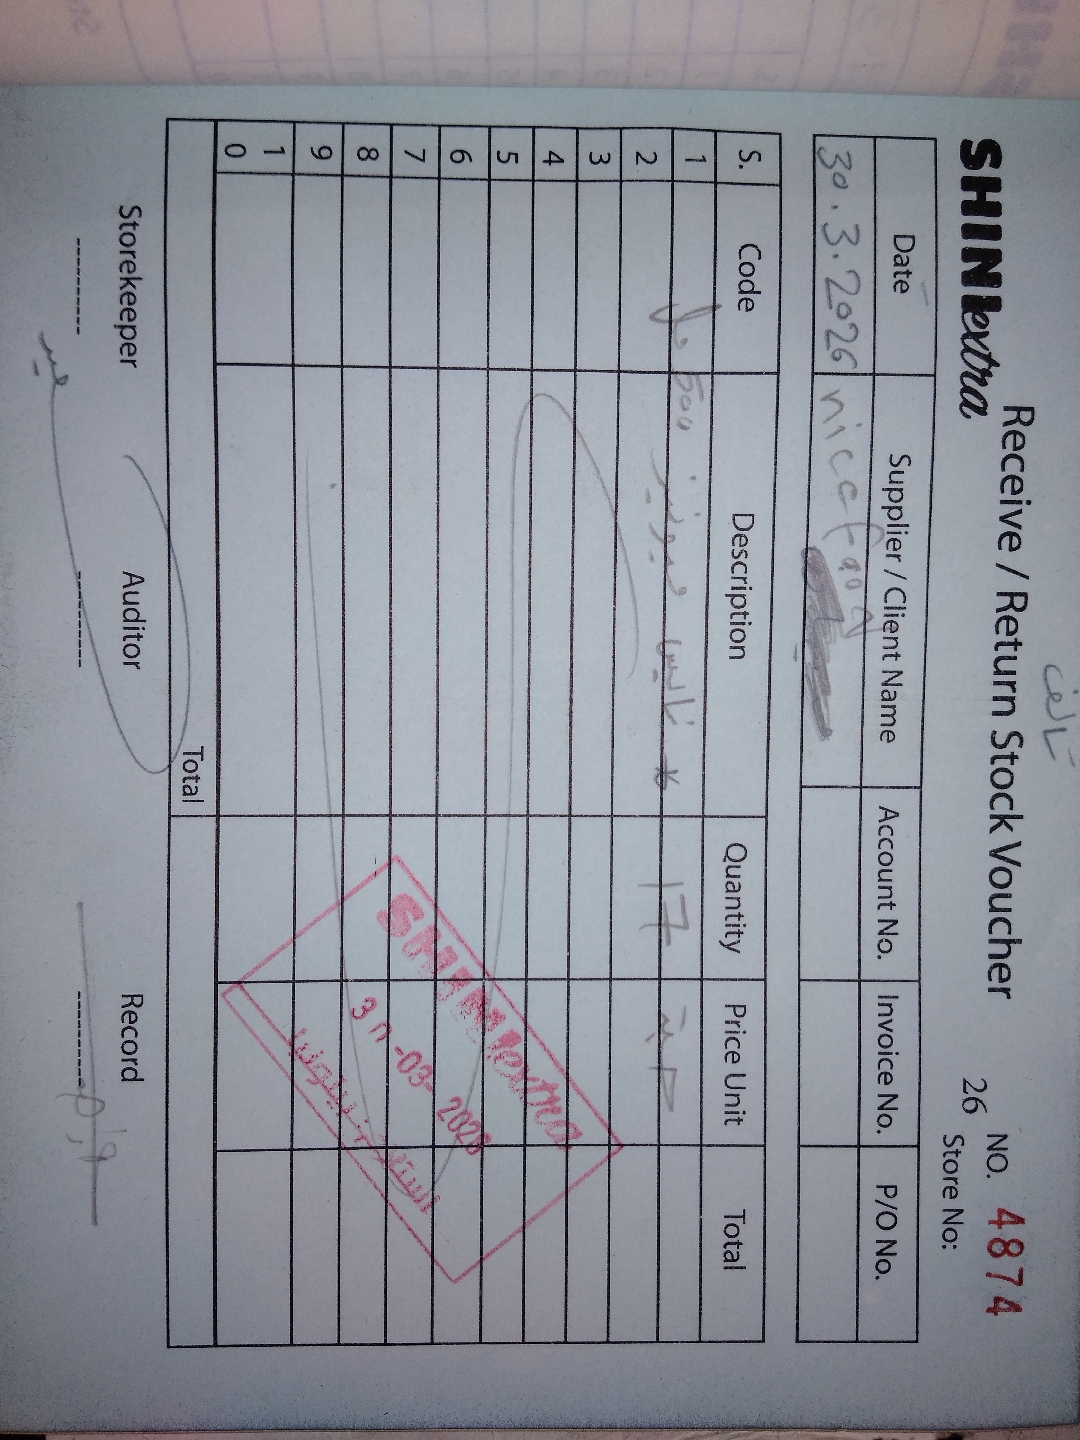 تالف
Receive / Return Stock Voucher
NO. 4874
SHINIextra
26 Store No:
Date Supplier / Client Name Account No. Invoice No. P/O No.
30.3.2026 nice food
S. Code Description Quantity Price Unit Total
1
* تايس فيروز 500 مل 17
2
3
4
5
6
7
8
9
1
0
Total
SHINIextra
30-03-2026
Storekeeper Auditor Record